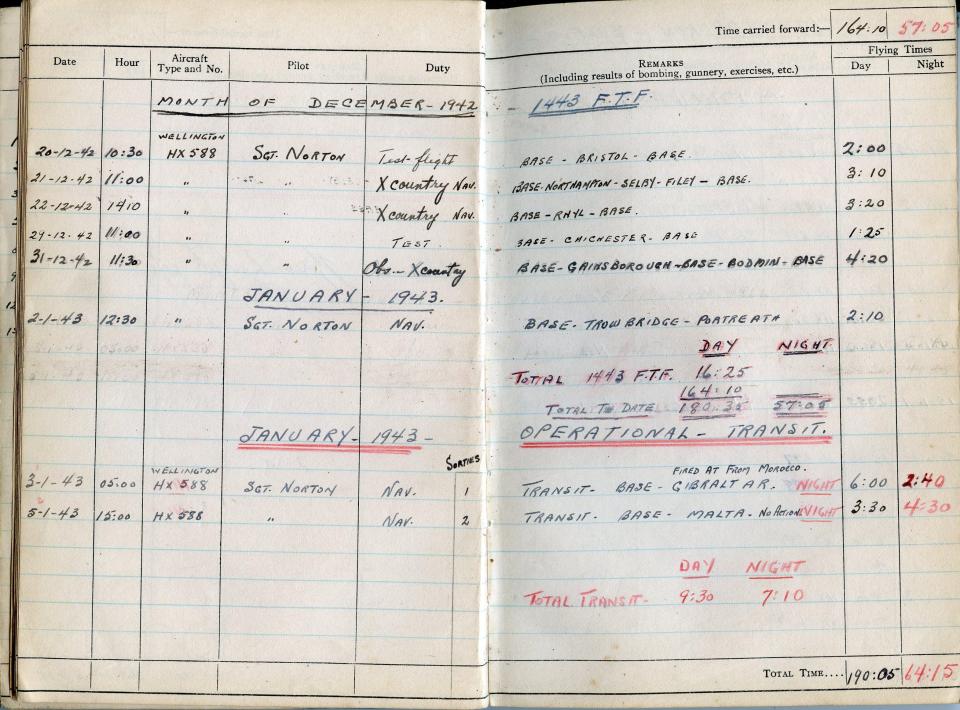 Time carried forward:— 164:10 57:05
Date Hour Aircraft Type and No. Pilot Duty REMARKS (Including results of bombing, gunnery, exercises, etc.) Flying Times Day Night
MONTH OF DECEMBER - 1942 1443 F.T.F.
WELLINGTON
20-12-42 10:30 HX588 SGT. NORTON Test flight BASE - BRISTOL - BASE. 2:00
21-12-42 11:00 " " X country NAV. BASE-NORTHAMPTON-SELBY-FILEY - BASE. 3:10
22-12-42 1410 " " X country NAV. BASE-RHYL-BASE. 3:20
29-12-42 11:00 " " TEST BASE - CHICHESTER - BASE 1:25
31-12-42 11:30 " " Obs - X country BASE-GAINSBOROUGH-BASE-BODMIN-BASE 4:20
JANUARY - 1943.
2-1-43 12:30 " SGT. NORTON NAV. BASE - TROWBRIDGE - PORTREATH 2:10
DAY NIGHT
TOTAL 1443 F.T.F. 16:25
164:10
TOTAL TO DATE 180:35 57:05
JANUARY - 1943 - OPERATIONAL - TRANSIT.
SORTIES
WELLINGTON FIRED AT FROM MOROCCO.
3-1-43 05:00 HX588 SGT. NORTON NAV. 1 TRANSIT - BASE - GIBRALTAR. NIGHT 6:00 2:40
5-1-43 15:00 HX588 " NAV. 2 TRANSIT - BASE - MALTA - No Action NIGHT 3:30 4:30
DAY NIGHT
TOTAL TRANSIT - 9:30 7:10
TOTAL TIME.... 190:05 64:15